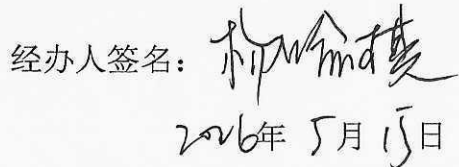 经办人签名：
2026年5月15日